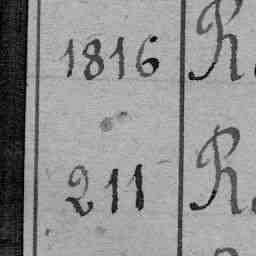 1816 R
211 R